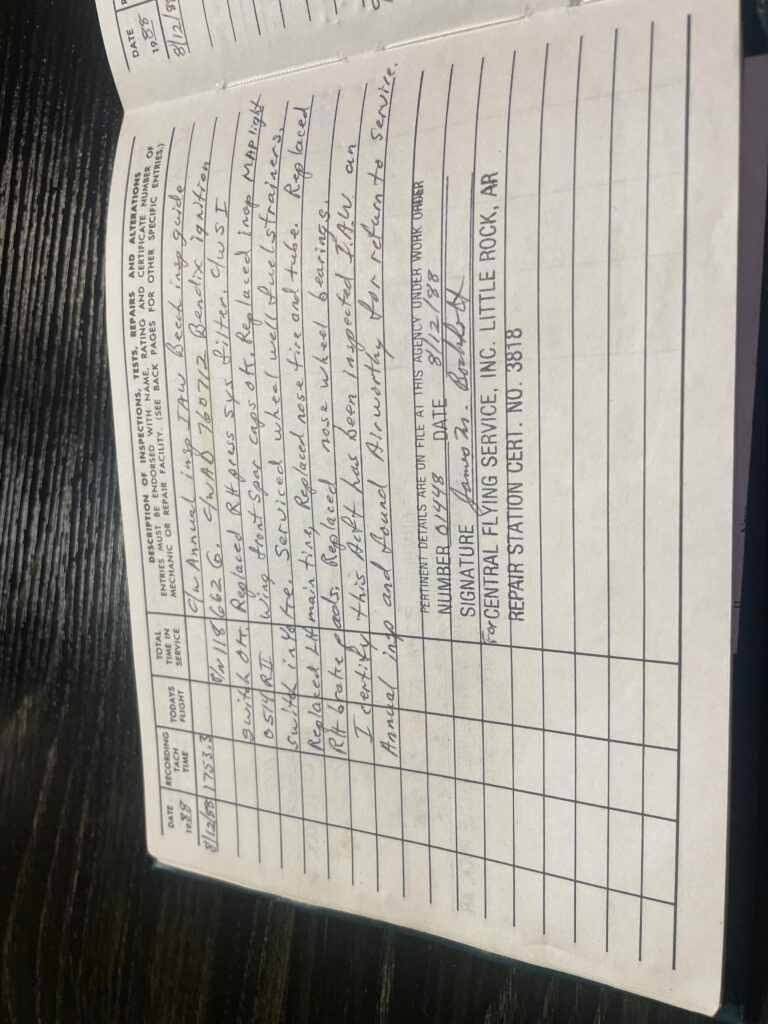 DATE
1988
8/12/88
DATE
1988
RECORDING
TACH
TIME
TODAYS
FLIGHT
TOTAL
TIME IN
SERVICE
DESCRIPTION OF INSPECTIONS, TESTS, REPAIRS AND ALTERATIONS
ENTRIES MUST BE ENDORSED WITH NAME, RATING AND CERTIFICATE NUMBER OF
MECHANIC OR REPAIR FACILITY. (SEE BACK PAGES FOR OTHER SPECIFIC ENTRIES.)
8/12/88 1753.3 C/W Annual insp IAW Beech insp guide
P/N 118662 G. C/W AD 760712 Bendix ignition
switch ok. Replaced RH press sys filter. C/W S I
0514 R II wing front spar caps ok. Replaced insp MAP light
switch in yoke. Serviced wheel well fuel strainers.
Replaced LH main ting. Replaced nose tire and tube. Replaced
RH brake pads. Replaced nose wheel bearings.
I certify this Acft has been inspected I.A.W. an
Annual insp and found Airworthy for return to service.
PERTINENT DETAILS ARE ON FILE AT THIS AGENCY UNDER WORK ORDER
NUMBER 01448 DATE 8/12/88
SIGNATURE James M.
For CENTRAL FLYING SERVICE, INC. LITTLE ROCK, AR
REPAIR STATION CERT. NO. 3818